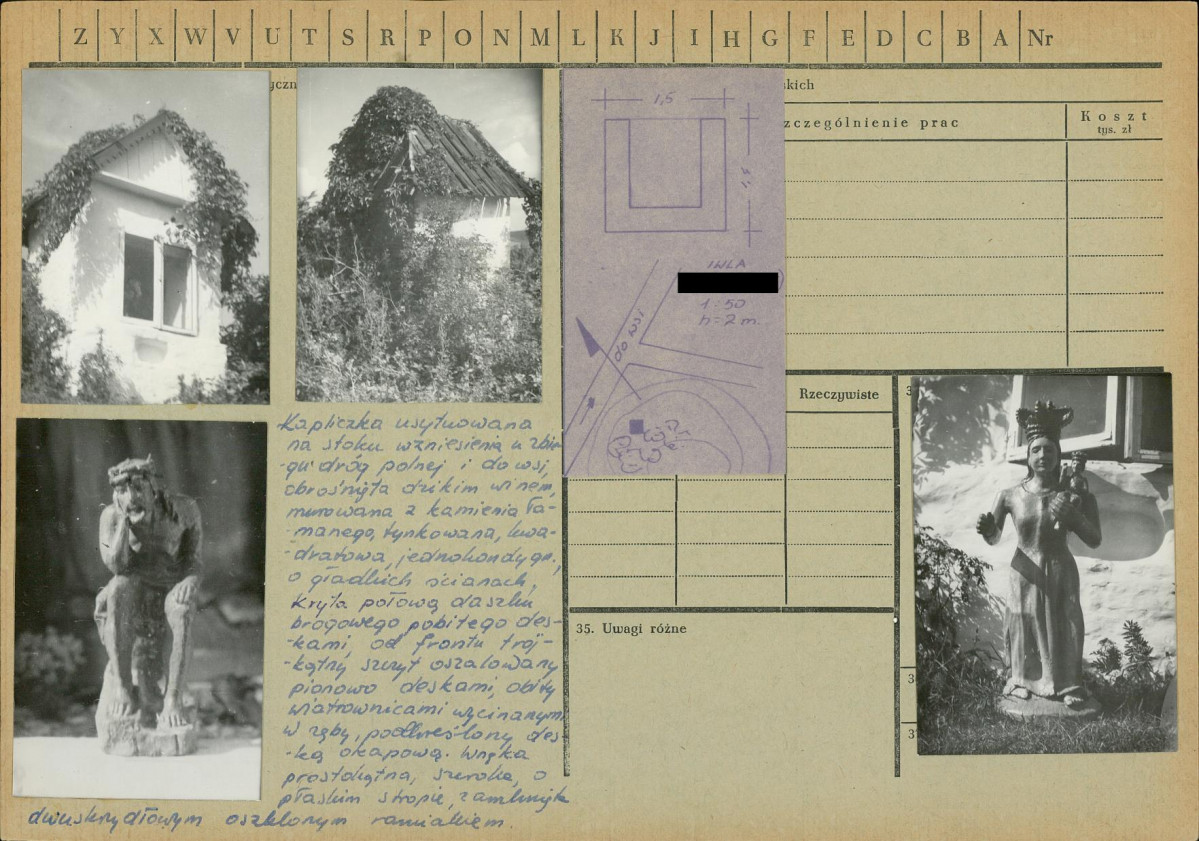 Z Y X W V U T S R P O N M L K J I H G F E D C B A Nr
yczn
skich
zczególnienie prac
Koszt
tys. zł
1,5
1,5
IWLA
1:50
h=2m.
do wsi
Rzeczywiste
35. Uwagi różne
Kapliczka usytuowana
na stoku wzniesienia u zbie-
-gu dróg polnej i do wsi,
obrośnięta dzikim winem,
murowana z kamienia ła-
-manego, tynkowana, kwa-
-dratowa, jednokondygn.,
o gładkich ścianach,
Kryta połową daszku
brogowego pobitego des-
-kami, od frontu trój-
-kątny szczyt oszalowany
pionowo deskami, obity
wiatrownicami wycinanymi
w zęby, podkreślony des-
-ką okapową. Wnęka
prostokątna, szeroka, o
płaskim stropie, zamknięta
dwuskrzydłowym oszklonym ramiakiem.